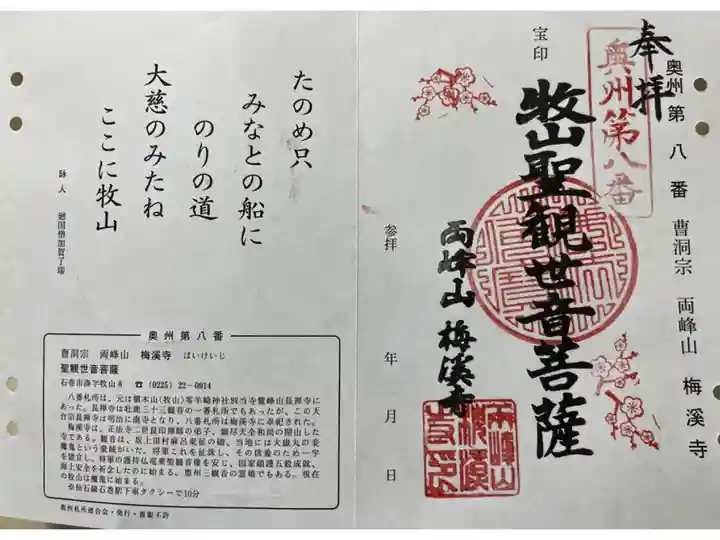 奉拝
奥州第八番
奥州第八番 曹洞宗 両峰山 梅溪寺
牧山聖観世音菩薩
宝印
両峰山 梅溪寺
参拝 年 月 日
両峰山
梅溪
寺印
たのめ只
みなとの船に
のりの道
大慈のみたね
ここに牧山
詠人 廻国僧加賀了瑞
奥州第八番
曹洞宗 両峰山 梅溪寺 ばいけいじ
聖観世音菩薩
石巻市湊字牧山8 ☎(0225)22-0914
八番札所は、元は鷲木山(牧山)零羊崎神社別当寺鷲峰山長禅寺に
あった。長禅寺は牡鹿三十三観音の一番札所でもあったが、この天
台宗長禅寺は明治に廃寺となり、八番札所は梅溪寺に奉祀された。
梅溪寺は、正法寺二世良印禅師の弟子、
寺である。観音は、坂上田村麻呂東征の砌、当地には大嶽丸の妾
魔鬼という豪賊がいた。将軍これを征誅し、その供養のため一宇
を建立し、将軍の護持仏竜乗聖観音像を安じ、国家鎮護五穀成就、
海上安全を祈念したのに始まる。奥州三観音の霊場でもある。現在
の牧山は魔鬼に始まる。
※仙石線石巻駅下車タクシーで10分
奥州札所連合会・発行・複製不許